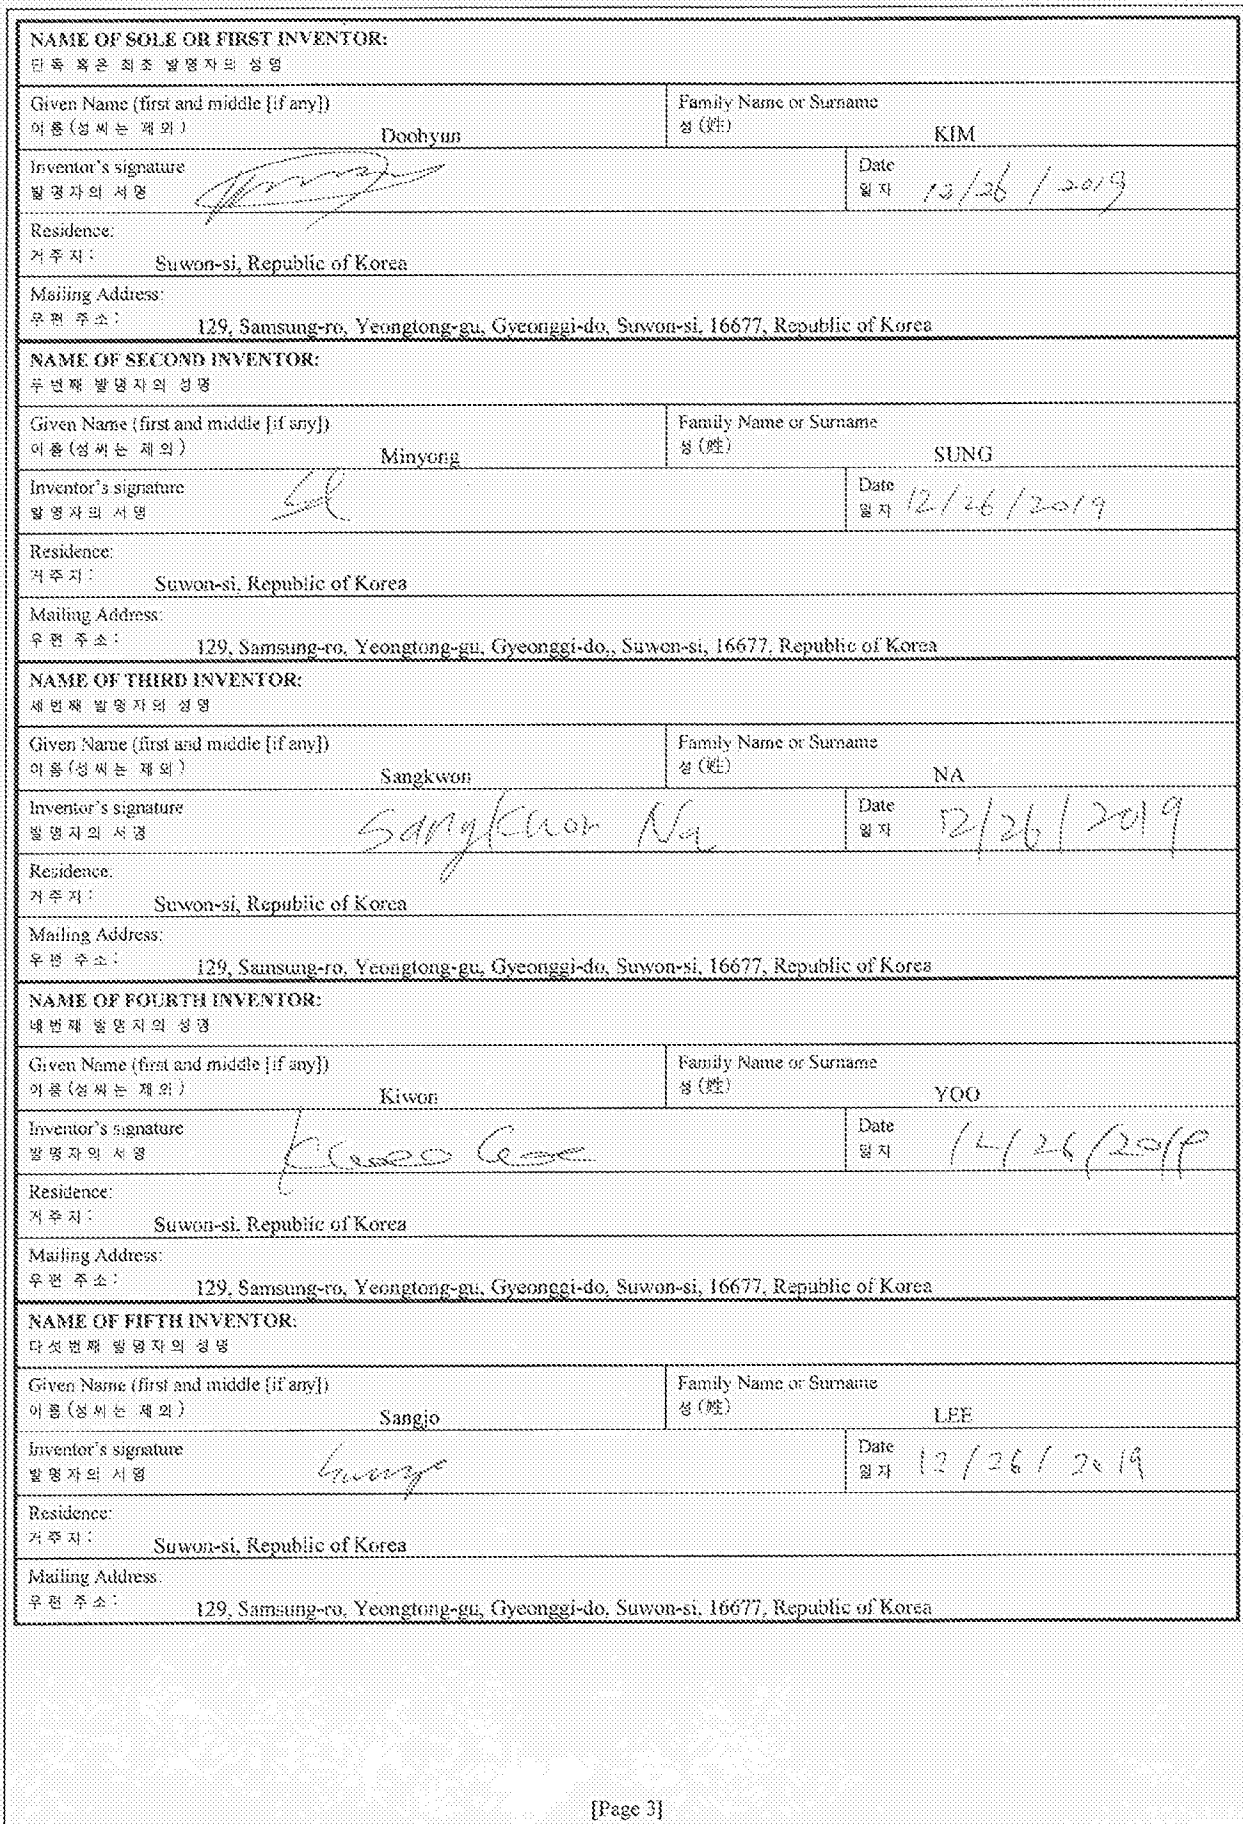 NAME OF SOLE OR FIRST INVENTOR:
단독 혹은 최초 발명자의 성명
Given Name (first and middle [if any])
이름(성씨는 제외)
Doohyun
Family Name or Surname
성(姓)
KIM
Inventor's signature
발명자의 서명
Date
일자 12/26/2019
Residence:
거주지:
Suwon-si, Republic of Korea
Mailing Address:
우편 주소:
129, Samsung-ro, Yeongtong-gu, Gyeonggi-do, Suwon-si, 16677, Republic of Korea
NAME OF SECOND INVENTOR:
두번째 발명자의 성명
Given Name (first and middle [if any])
이름(성씨는 제외)
Minyong
Family Name or Surname
성(姓)
SUNG
Inventor's signature
발명자의 서명
Date
일자 12/26/2019
Residence:
거주지:
Suwon-si, Republic of Korea
Mailing Address:
우편 주소:
129, Samsung-ro, Yeongtong-gu, Gyeonggi-do,, Suwon-si, 16677, Republic of Korea
NAME OF THIRD INVENTOR:
세번째 발명자의 성명
Given Name (first and middle [if any])
이름(성씨는 제외)
Sangkwon
Family Name or Surname
성(姓)
NA
Inventor's signature
발명자의 서명
Sangkwon Na
Date
일자 12/26/2019
Residence:
거주지:
Suwon-si, Republic of Korea
Mailing Address:
우편 주소:
129, Samsung-ro, Yeongtong-gu, Gyeonggi-do, Suwon-si, 16677, Republic of Korea
NAME OF FOURTH INVENTOR:
네번째 발명자의 성명
Given Name (first and middle [if any])
이름(성씨는 제외)
Kiwon
Family Name or Surname
성(姓)
YOO
Inventor's signature
발명자의 서명
Date
일자 12/26/2019
Residence:
거주지:
Suwon-si, Republic of Korea
Mailing Address:
우편 주소:
129, Samsung-ro, Yeongtong-gu, Gyeonggi-do, Suwon-si, 16677, Republic of Korea
NAME OF FIFTH INVENTOR:
다섯번째 발명자의 성명
Given Name (first and middle [if any])
이름(성씨는 제외)
Sangjo
Family Name or Surname
성(姓)
LEE
Inventor's signature
발명자의 서명
Date
일자 12/26/2019
Residence:
거주지:
Suwon-si, Republic of Korea
Mailing Address:
우편 주소:
129, Samsung-ro, Yeongtong-gu, Gyeonggi-do, Suwon-si, 16677, Republic of Korea
[Page 3]